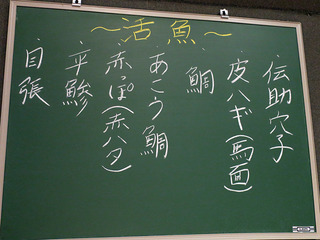 ～活魚～
伝助穴子
皮ハギ(馬面)
鯛
あこう鯛
赤ぽ(赤ハタ)
平鯵
目張